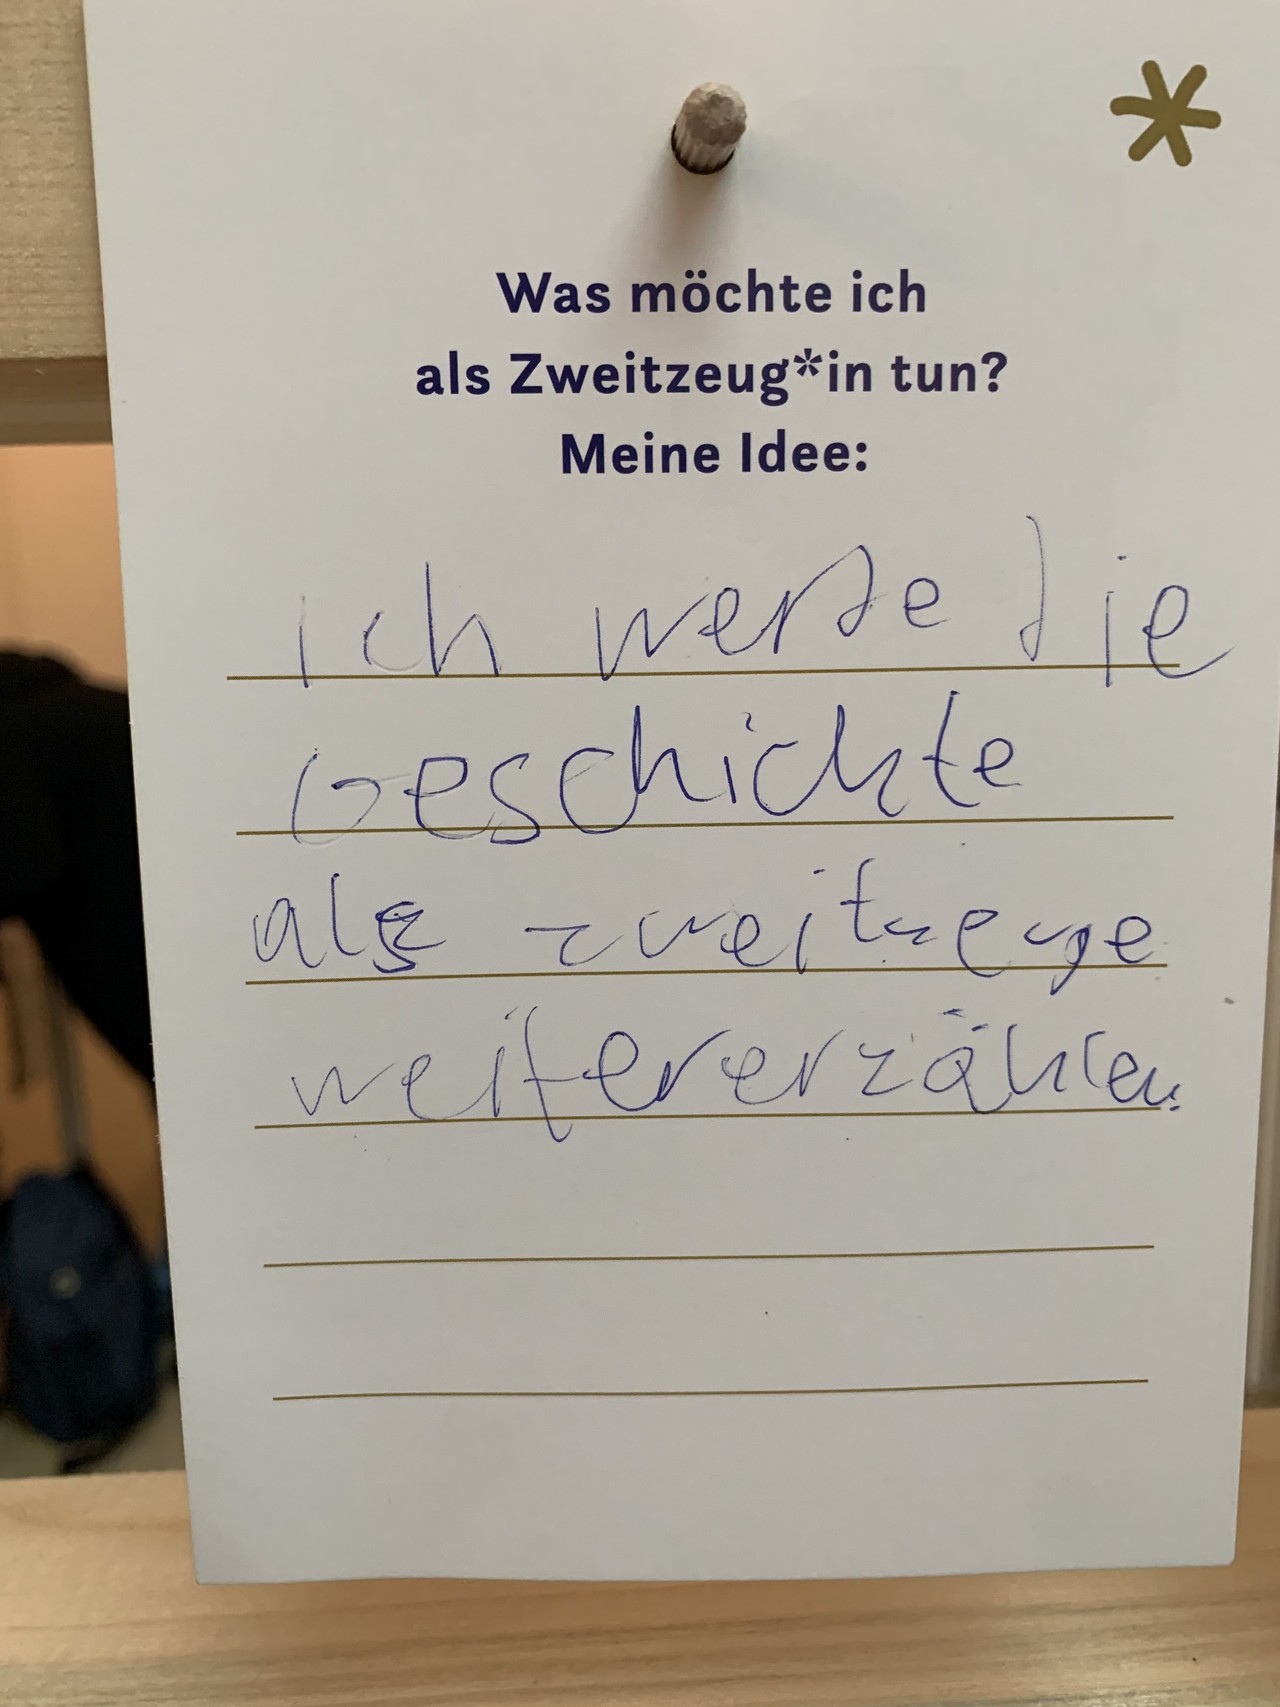 Was möchte ich
als Zweitzeug*in tun?
Meine Idee:
ich werde die
Geschichte
als zweitzeuge
weitererzählen.